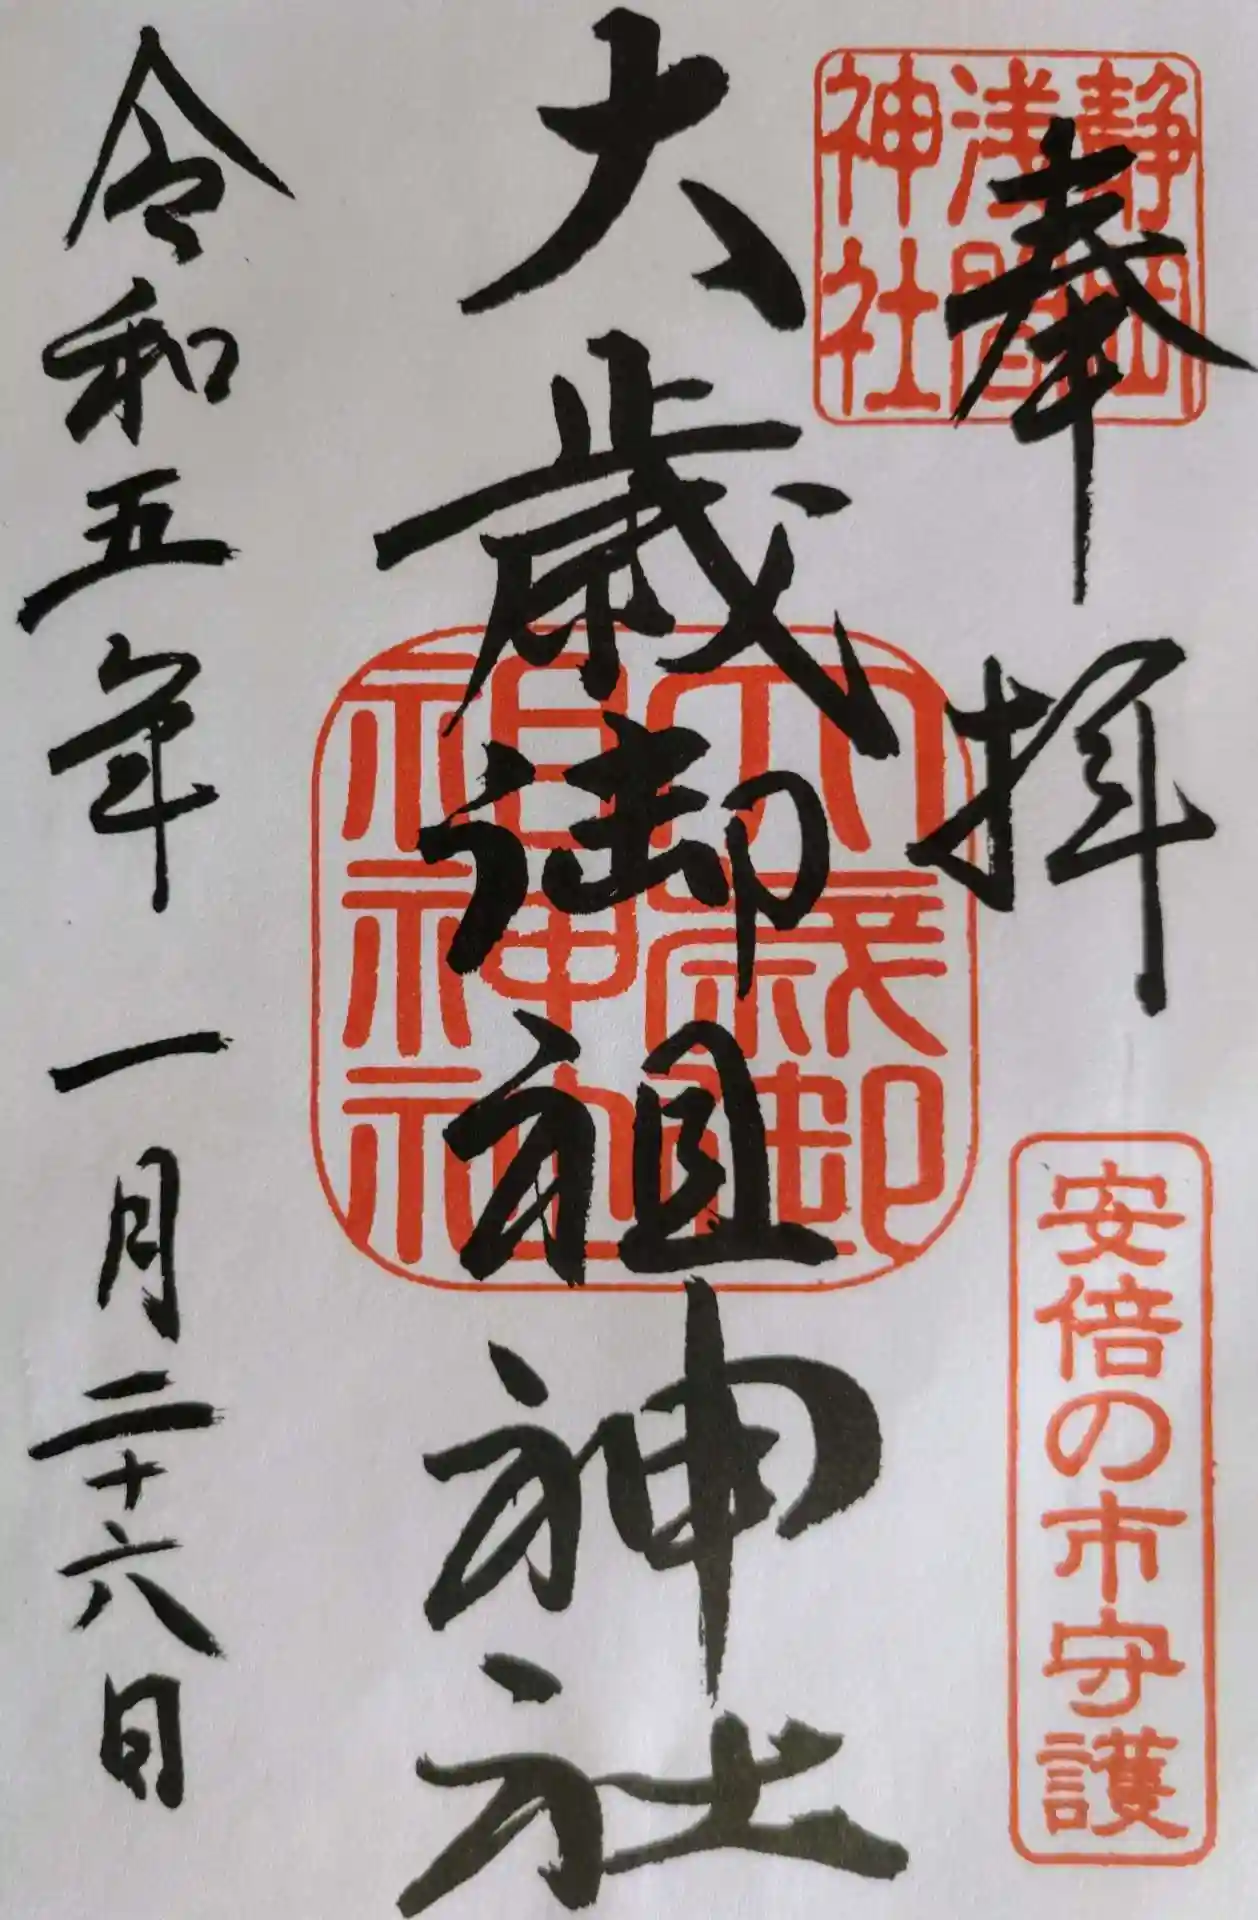 奉拝
静岡
浅間
神社
安倍の市守護
大歳御祖神社
大歳御
祖神社
令和五年一月二十六日